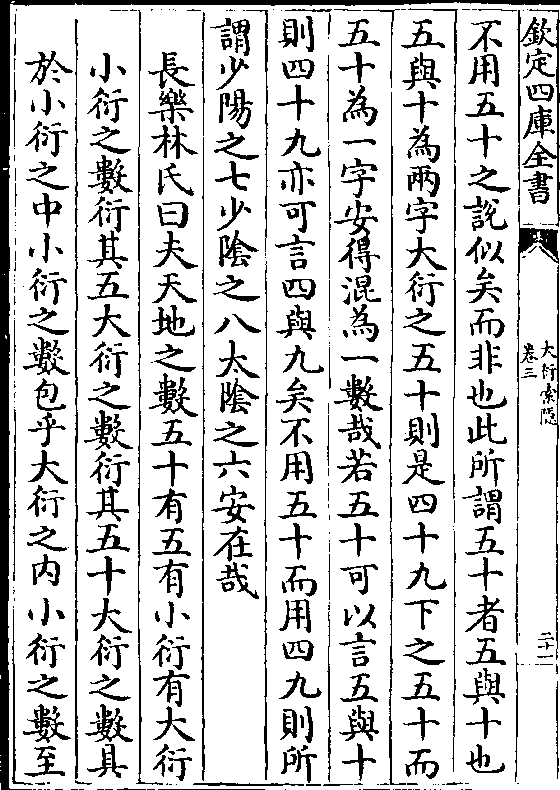 欽定四庫全書
大衍索隱
卷三
二十一
不用五十之說似矣而非也此所謂五十者五與十也
五與十為兩字大衍之五十則是四十九下之五十而
五十為一字安得混為一數哉若五十可以言五與十
則四十九亦可言四與九矣不用五十而用四九則所
謂少陽之七少陰之八太陰之六安在哉
長樂林氏曰夫天地之數五十有五有小衍有大衍
小衍之數衍其五大衍之數衍其五十大衍之數具
於小衍之中小衍之數包乎大衍之内小衍之數至